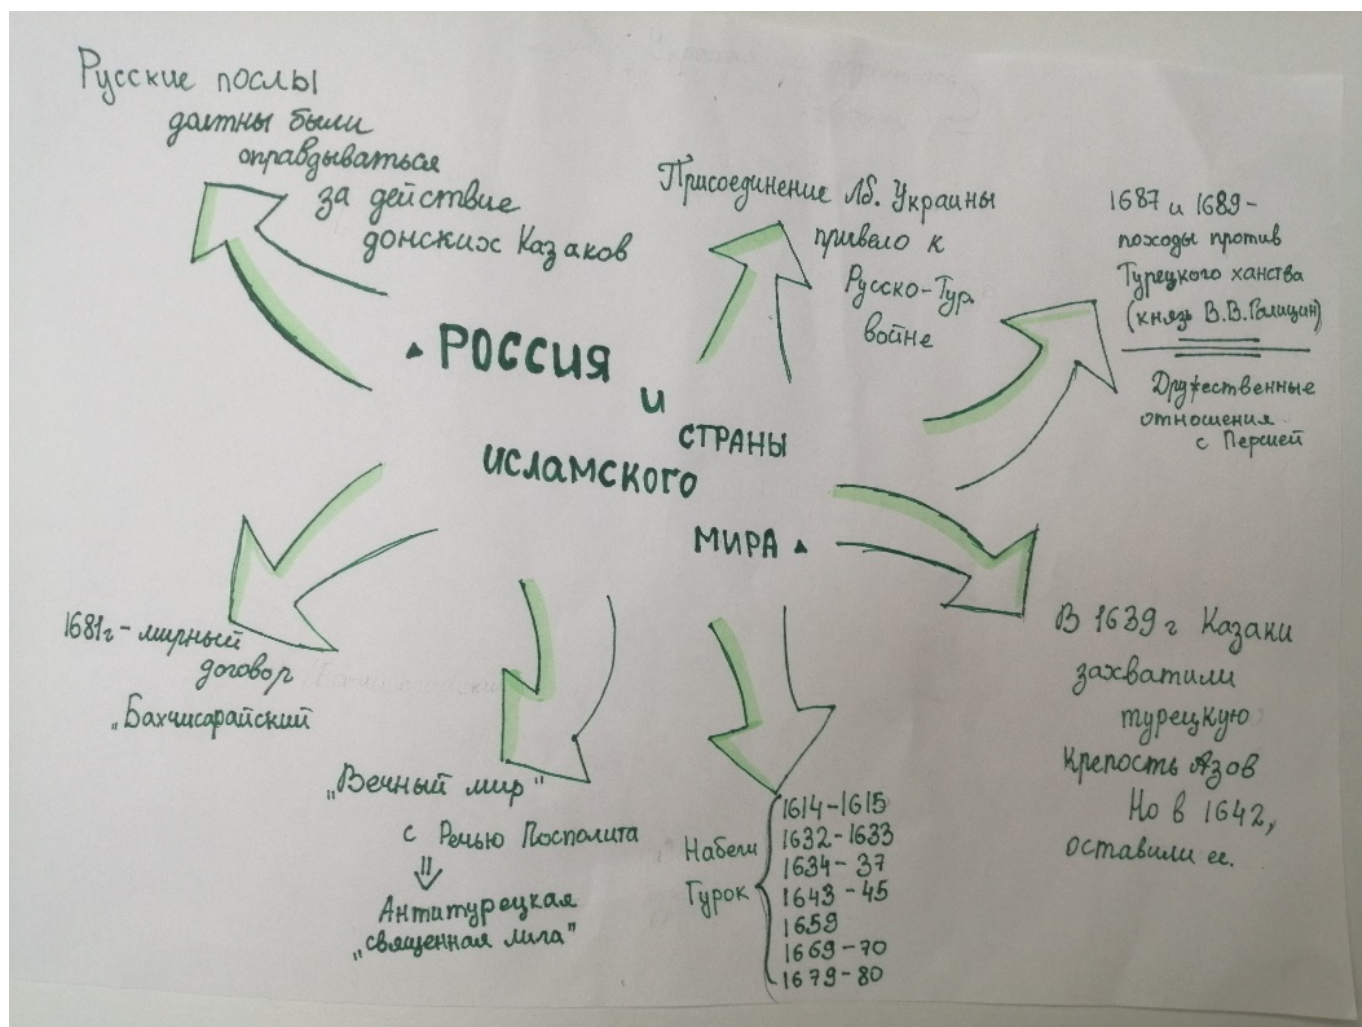 Русские послы
должны были
оправдываться
за действие
донских Казаков
Присоединение Лб. Украины
привело к
Русско-Тур.
войне
1687 и 1689-
походы против
Турецкого ханства
(князь В.В.Голицин)
Дружественные
отношения
с Персией
РОССИЯ
И
СТРАНЫ
ИСЛАМСКОГО
МИРА
1681г-мирный
договор
„Бахчисарайский
„Вечный мир"
с Речью Посполита
Антитурецкая
„священная лига"
Набеги
Турок
1614-1615
1632-1633
1634-37
1643-45
1659
1669-70
1679-80
В 1639г Казаки
захватили
турецкую
крепость Азов
Но в 1642,
оставили ее.